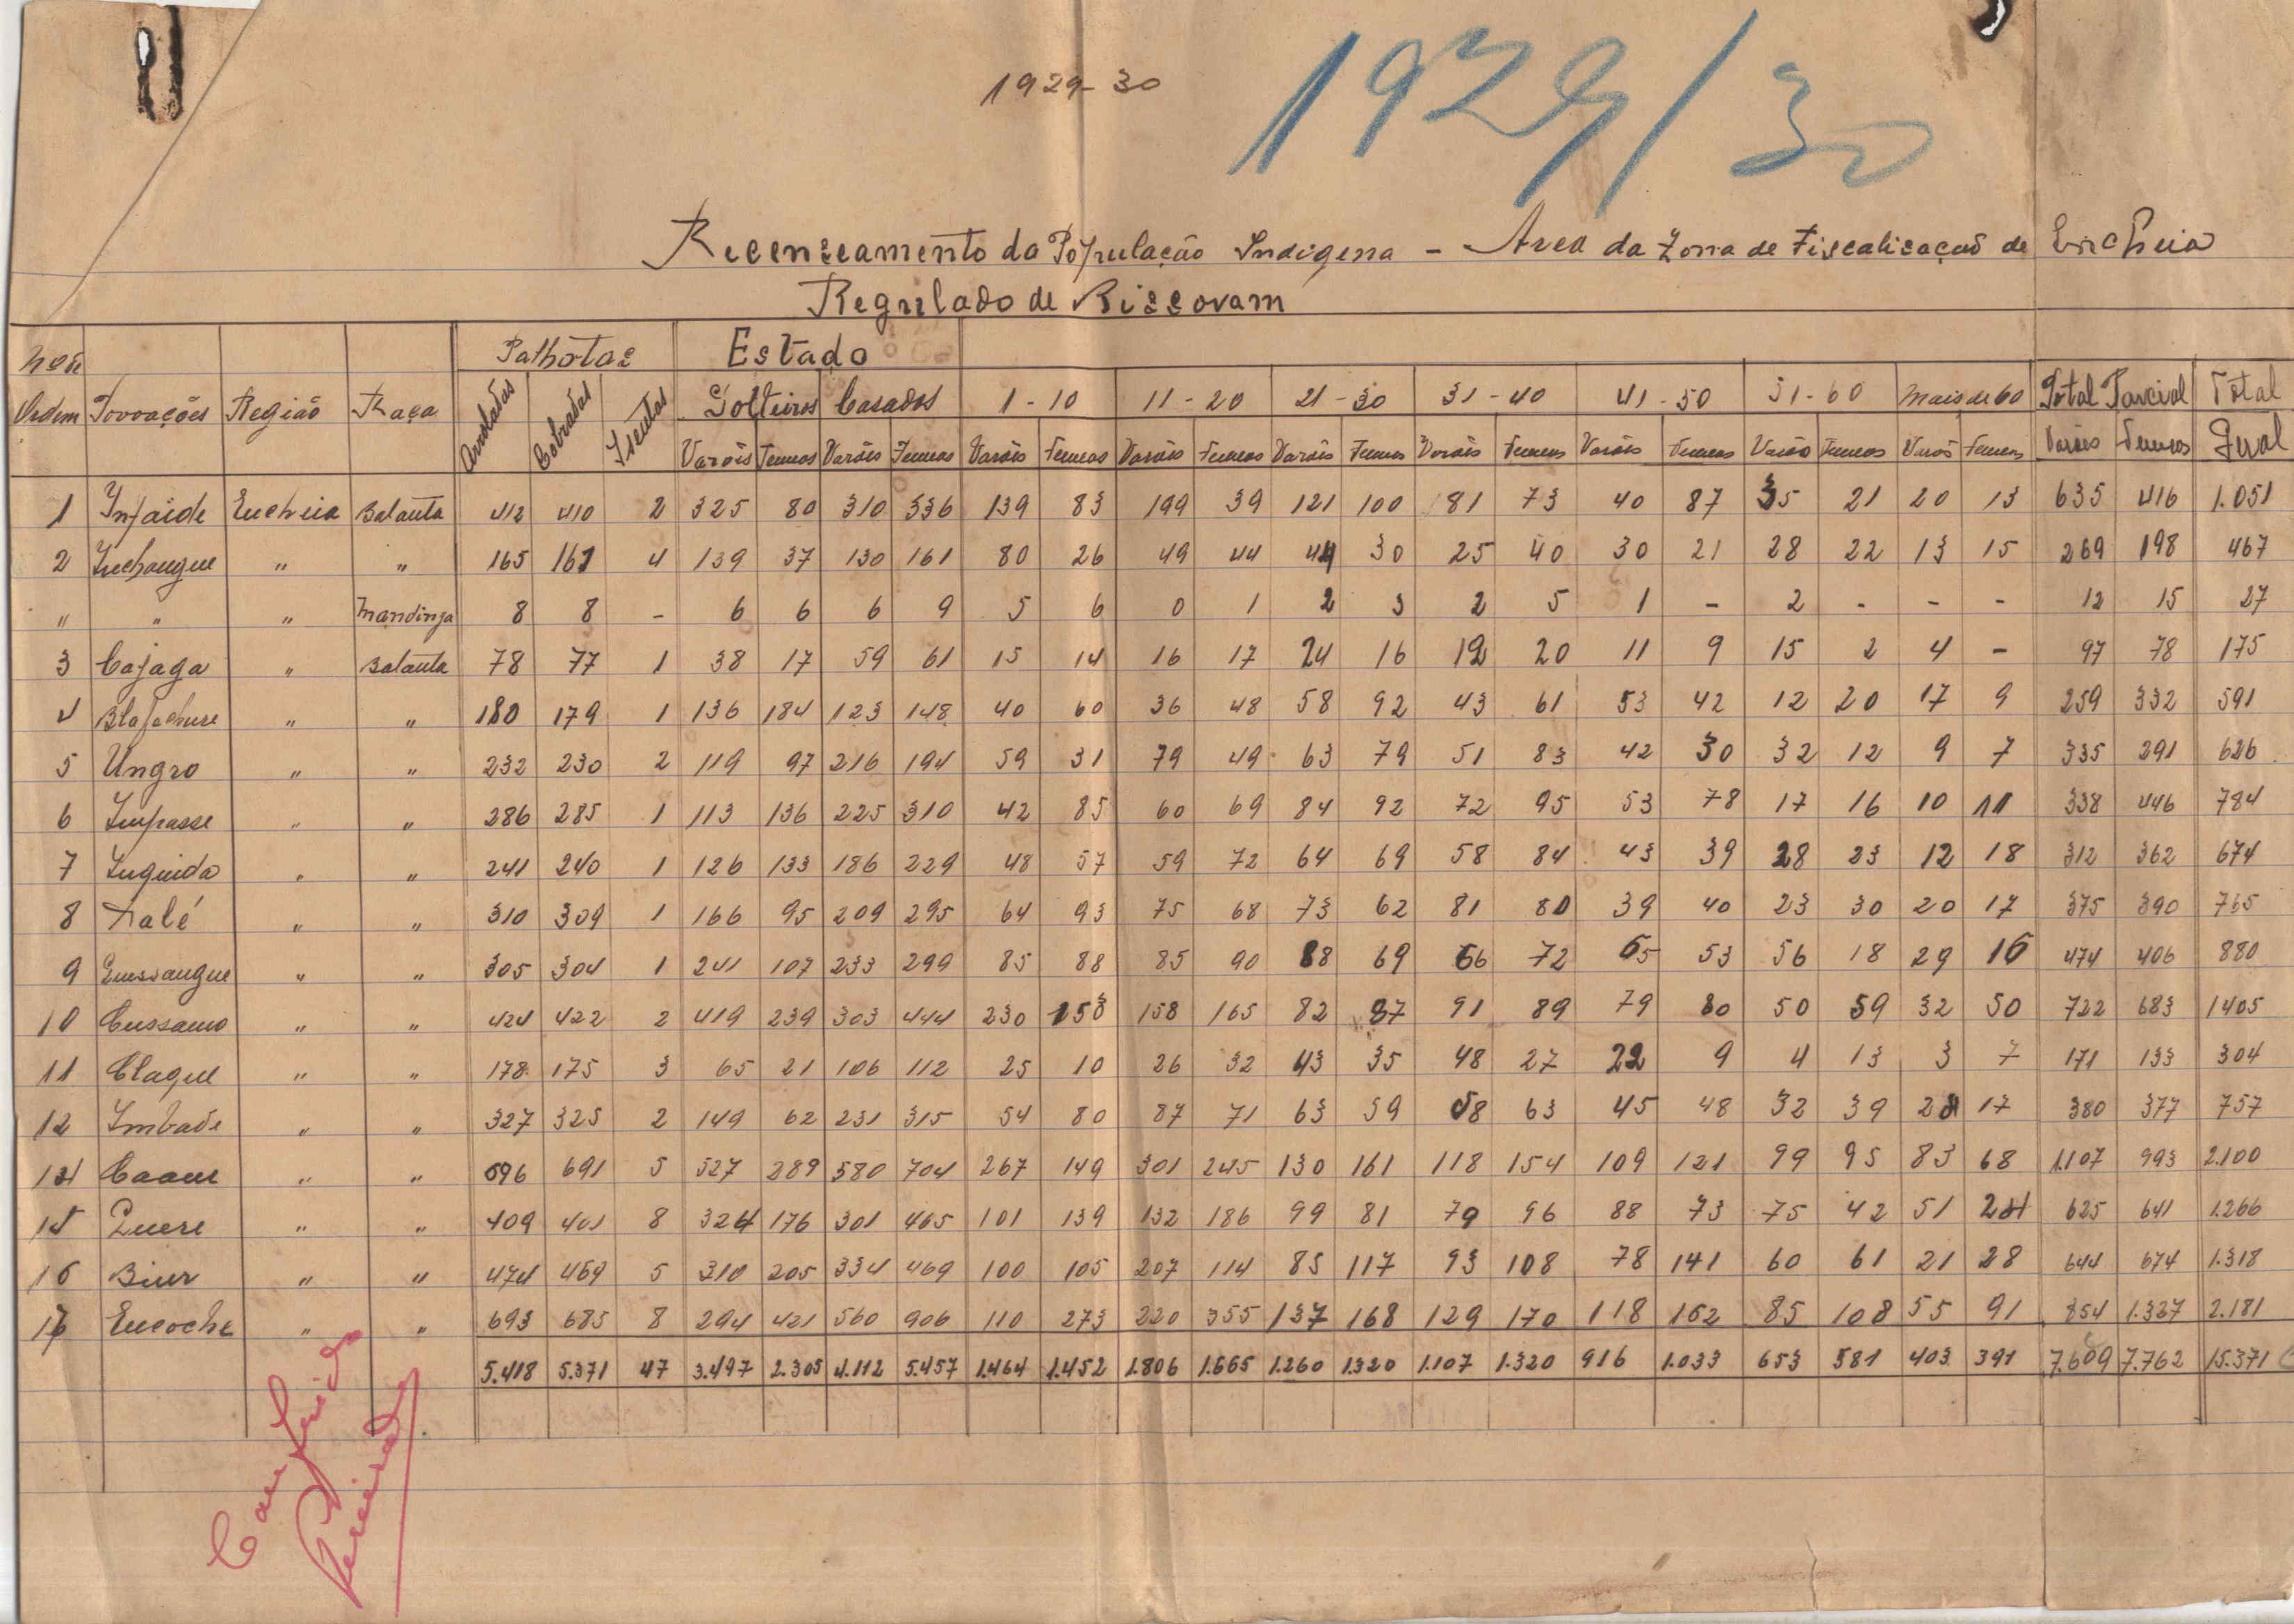 1929-30
1929/30
Recenseamento da População Indigena - Area da Zona de Fiscalisação de Encheia
Regulado de Bissovam
Nº de Ordem Povoações Região Raça Palhotas Estado 1-10 11-20 21-30 31-40 41-50 51-60 Mais de 60 Total Parcial Total Geral
Arroladas Cobradas Isentas Solteiros Casados
Varões Femeas Varões Femeas Varões Femeas Varões Femeas Varões Femeas Varões Femeas Varões Femeas Varões Femeas Varões Femeas Varões Femeas
1 Infaide Encheia Balanta 412 410 2 325 80 310 336 139 83 199 39 121 100 81 73 40 87 35 21 20 13 635 416 1.051
2 Inchangue " " 165 161 4 139 37 130 161 80 26 49 44 44 30 25 40 30 21 28 22 13 15 269 198 467
" " " Mandinga 8 8 - 6 6 6 9 5 6 0 1 2 3 2 5 1 - 2 - - - 12 15 27
3 Cajaga " Balanta 78 77 1 38 17 59 61 15 14 16 17 24 16 12 20 11 9 15 2 4 - 97 78 175
4 Blafchure " " 180 179 1 136 184 123 148 40 60 36 48 58 92 43 61 53 42 12 20 17 9 259 332 591
5 Ungro " " 232 230 2 119 97 216 194 59 31 79 49 63 79 51 83 42 30 32 12 9 7 335 291 626
6 Impasse " " 286 285 1 113 136 225 310 42 85 60 69 84 92 72 95 53 78 17 16 10 11 338 446 784
7 Inquida " " 241 240 1 126 133 186 229 48 57 59 72 64 69 58 84 43 39 28 23 12 18 312 362 674
8 Nalé " " 310 309 1 166 95 209 295 64 93 75 68 73 62 81 80 39 40 23 30 20 17 375 390 765
9 Quessangue " " 305 304 1 241 107 233 299 85 88 85 90 88 69 66 72 65 53 56 18 29 16 474 406 880
10 Cussamo " " 424 422 2 419 239 303 444 230 153 158 165 82 87 91 89 79 80 50 59 32 50 722 683 1405
11 Claque " " 178 175 3 65 21 106 112 25 10 26 32 43 35 48 27 22 9 4 13 3 7 171 133 304
12 Imbade " " 327 325 2 149 62 231 315 54 80 87 71 63 59 58 63 45 48 32 39 28 17 380 377 757
14 Caam " " 696 691 5 527 289 580 704 267 149 301 245 130 161 118 154 109 121 99 95 83 68 1.107 993 2.100
15 Quere " " 409 401 8 324 176 301 465 101 139 132 186 99 81 79 96 88 73 75 42 51 24 625 641 1.266
16 Biur " " 474 469 5 310 205 334 469 100 105 207 114 85 117 93 108 78 141 60 61 21 28 644 674 1.318
17 Encoche " " 693 685 8 294 421 560 906 110 273 220 355 137 168 129 170 118 162 85 108 55 91 854 1.327 2.181
5.418 5.371 47 3.497 2.305 4.112 5.457 1.464 1.452 1.806 1.665 1.260 1.320 1.107 1.320 916 1.033 653 581 403 391 7.609 7.762 15.371